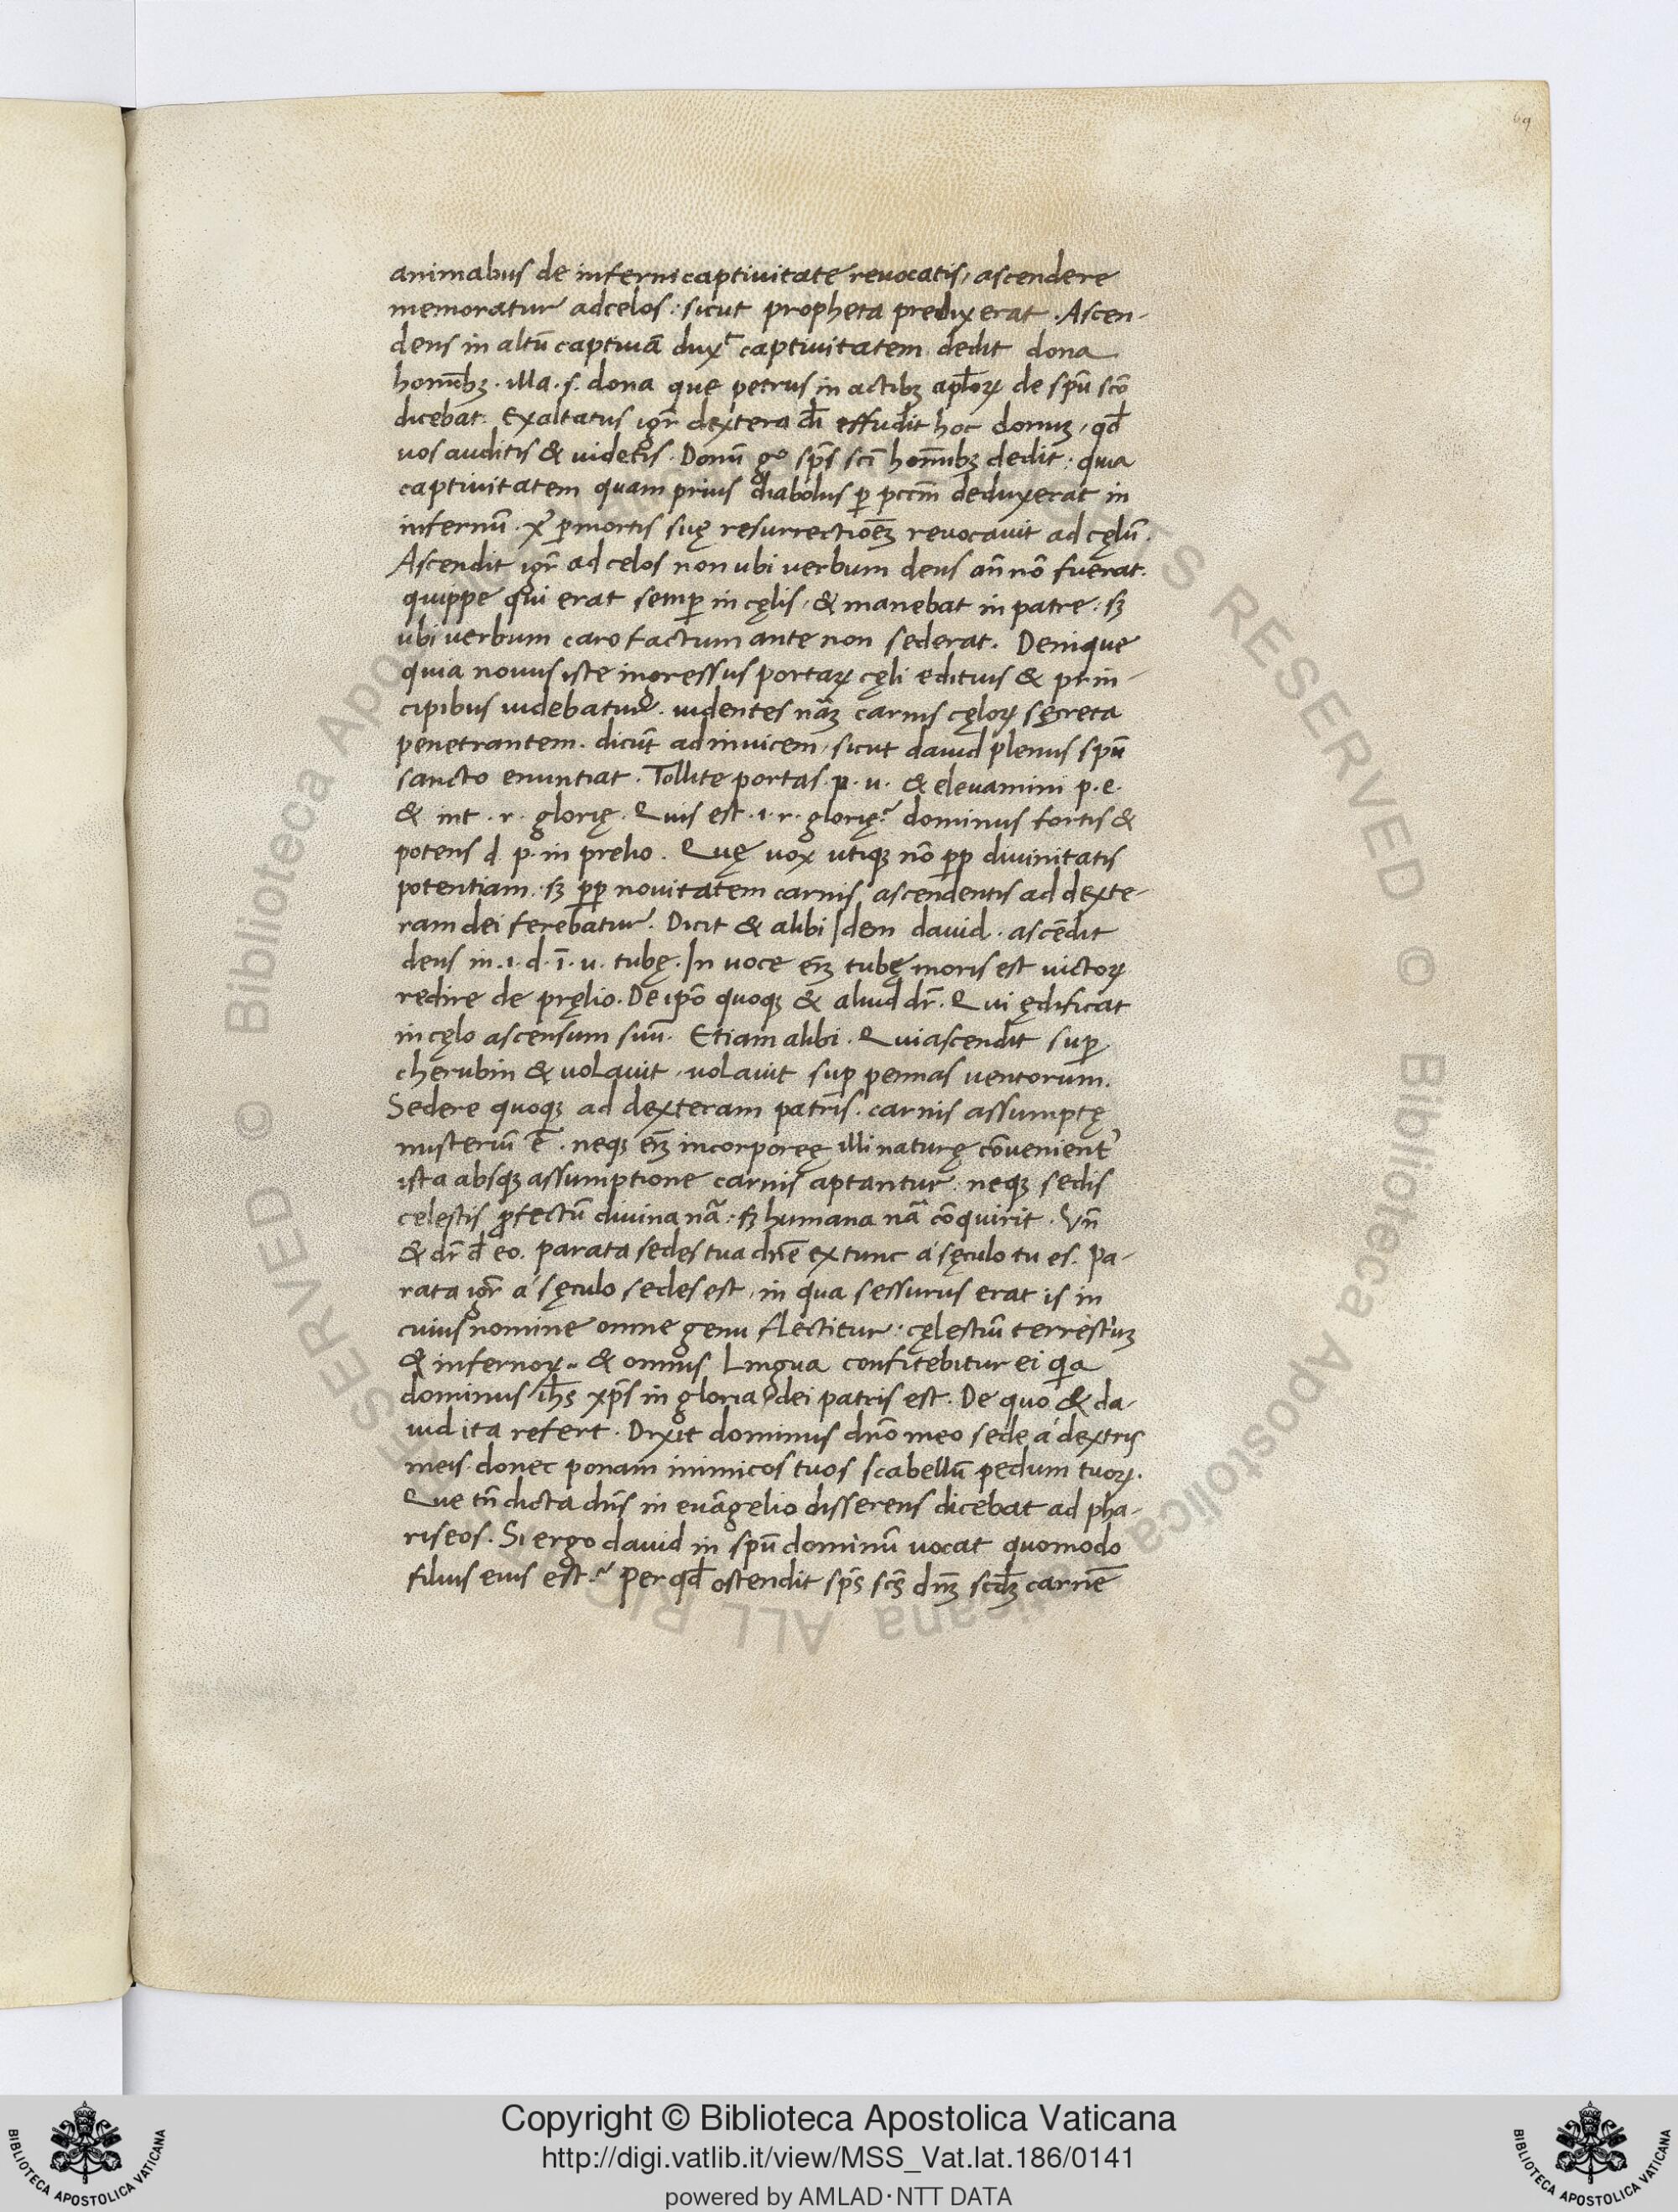 69
animabus de inferni captiuitate reuocatis, ascendere
memoratur ad celos: sicut propheta predixerat. Ascen-
dens in altū captiuā duxᵗ captiuitatem dedit dona
homībꝫ. illa .s. dona que petrus in actibꝫ apl̄oꝝ de spū scō
dicebat. Exaltatus igr̄ dextera dī effudit hoc donuꝫ, qd̄
uos auditis & uidetis. Donū gͦ sp̄s scī homībꝫ dedit: quia
captiuitatem quam prius diabolus ꝑ pccm̄ deduxerat in
infernū. xp̄ ꝑ mortis suę resurrectiōeꝫ reuocauit ad cęlū.
Ascendit igr̄ ad celos non ubi uerbum deus an̄ nō fuerat.
quippe qui erat semꝑ in cęlis, & manebat in patre: sꝫ
ubi uerbum caro factum ante non sederat. Denique
quia nouus iste ingressus portaꝝ cęli edituis & prin-
cipibus uidebatur. uidentes nāꝫ carnis cęloꝝ secreta
penetrantem. dicūt ad inuicem, sicut dauid plenus spū
sancto enuntiat. Tollite portas. p. u. & eleuamini p. e.
& int. r. glorię. Quis est .i. r. glorię? dominus fortis &
potens d. p. in prelio. Quę uox utiqꝫ nō ꝓp diuinitatis
potentiam. sꝫ ꝓp nouitatem carnis ascendentis ad dexte-
ram dei ferebatur. Dicit & alibi Idem dauid. ascēdit
deus in .i. d. ī. u. tubę. In uoce em̄ tubę moris est uictoꝝ
redire de pręlio. De ipō quoqꝫ & aliud dr̄. Qui ędificat
in cęlo ascensum suū. Etiam alibi. Qui ascendit suꝑ
cherubin & uolauit, uolauit suꝑ pennas uentorum.
Sedere quoqꝫ ad dexteram patris. carnis assumptę
misteriū ē. neqꝫ em̄ incorporeę illi naturę cōuenient̾
ista absqꝫ assumptione carnis aptantur. neqꝫ sedis
celestis ꝓfectū diuina nā. sꝫ humana nā cōquirit. Vn̄
& dr̄ d̄ eo. Parata sedes tua dn̄e ex tunc a sęculo tu es. Pa-
rata igr̄ a sęculo sedes est, in qua sessurus erat is in
cuius nomine omne genu flectitur: cęlestiū terrestriuꝫ
& infernoꝝ. & omnis Lingua confitebitur ei qꝛa
dominus ih̄s xp̄s in gloria dei patris est. De quo & da-
uid ita refert. Dixit dominus dn̄o meo sede a dextris
meis donec ponam inimicos tuos scabellū pedum tuoꝝ.
Que tn̄ dicta dn̄s in euāgelio disserens dicebat ad pha-
riseos. Si ergo dauid in spū dominū uocat quomodo
filius eius est? Per qd̄ ostendit sp̄s scs̄ dn̄ꝫ scd̄ꝫ carnē
Copyright © Biblioteca Apostolica Vaticana
http://digi.vatlib.it/view/MSS_Vat.lat.186/0141
powered by AMLAD·NTT DATA